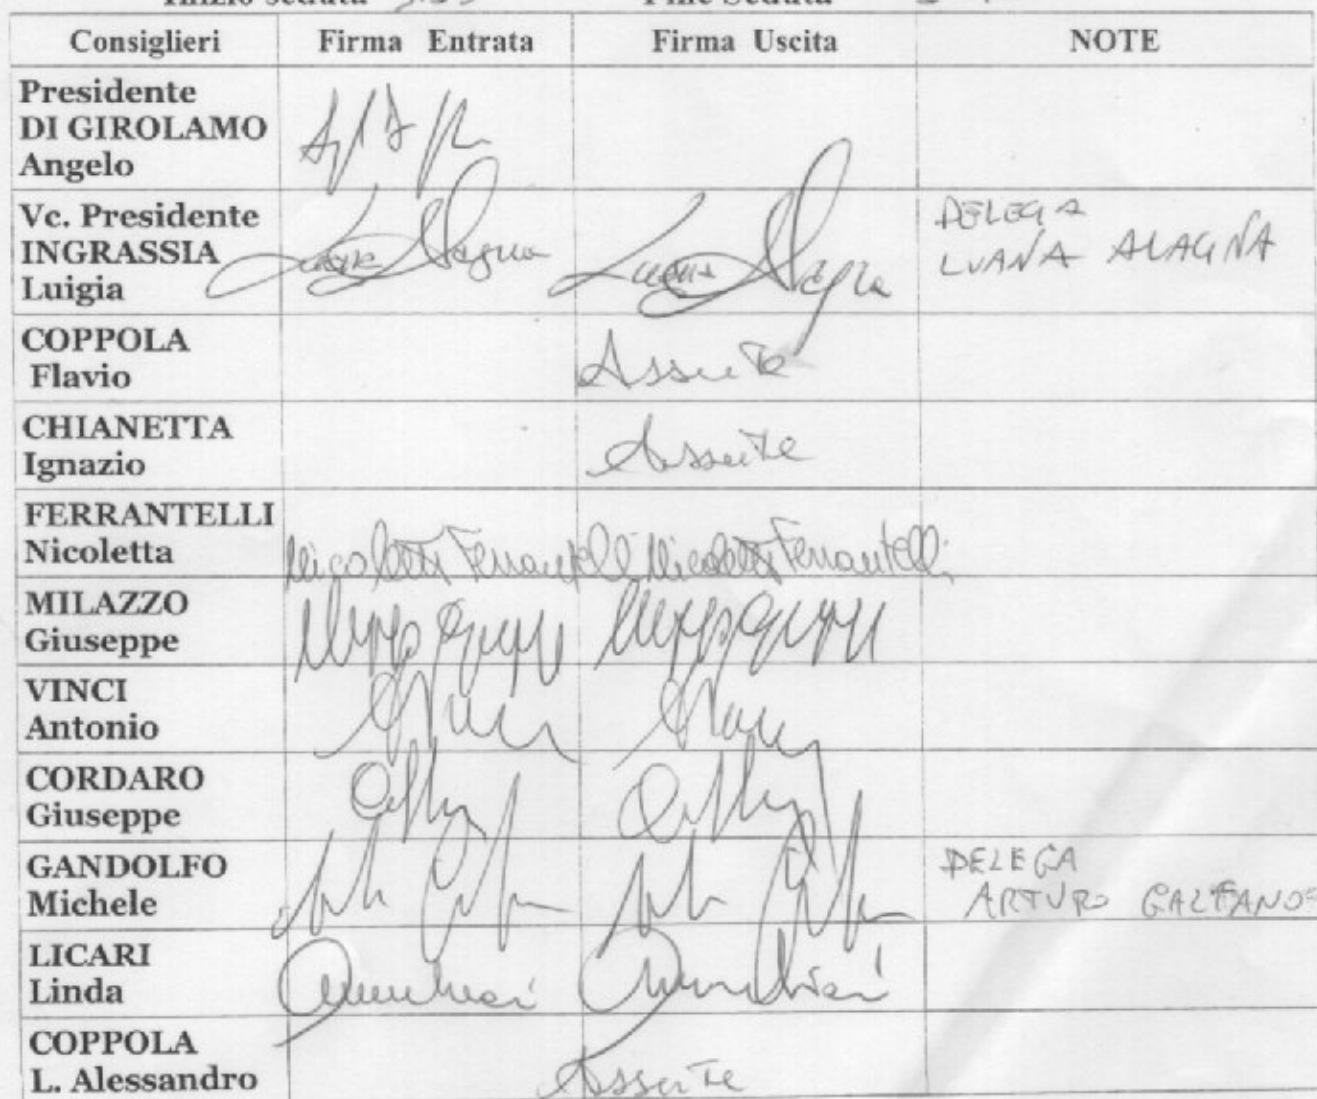 Inizio seduta Fine Seduta
Consiglieri Firma Entrata Firma Uscita NOTE
Presidente
DI GIROLAMO
Angelo
Vc. Presidente
INGRASSIA
Luigia
Luana Alagna Luana Alagna
DELEGA
LUANA ALAGNA
COPPOLA
Flavio
Assente
CHIANETTA
Ignazio
Assente
FERRANTELLI
Nicoletta
Nicoletta Ferrantelli Nicoletta Ferrantelli
MILAZZO
Giuseppe
VINCI
Antonio
CORDARO
Giuseppe
GANDOLFO
Michele
DELEGA
ARTURO GALFANO
LICARI
Linda
COPPOLA
L. Alessandro
Assente